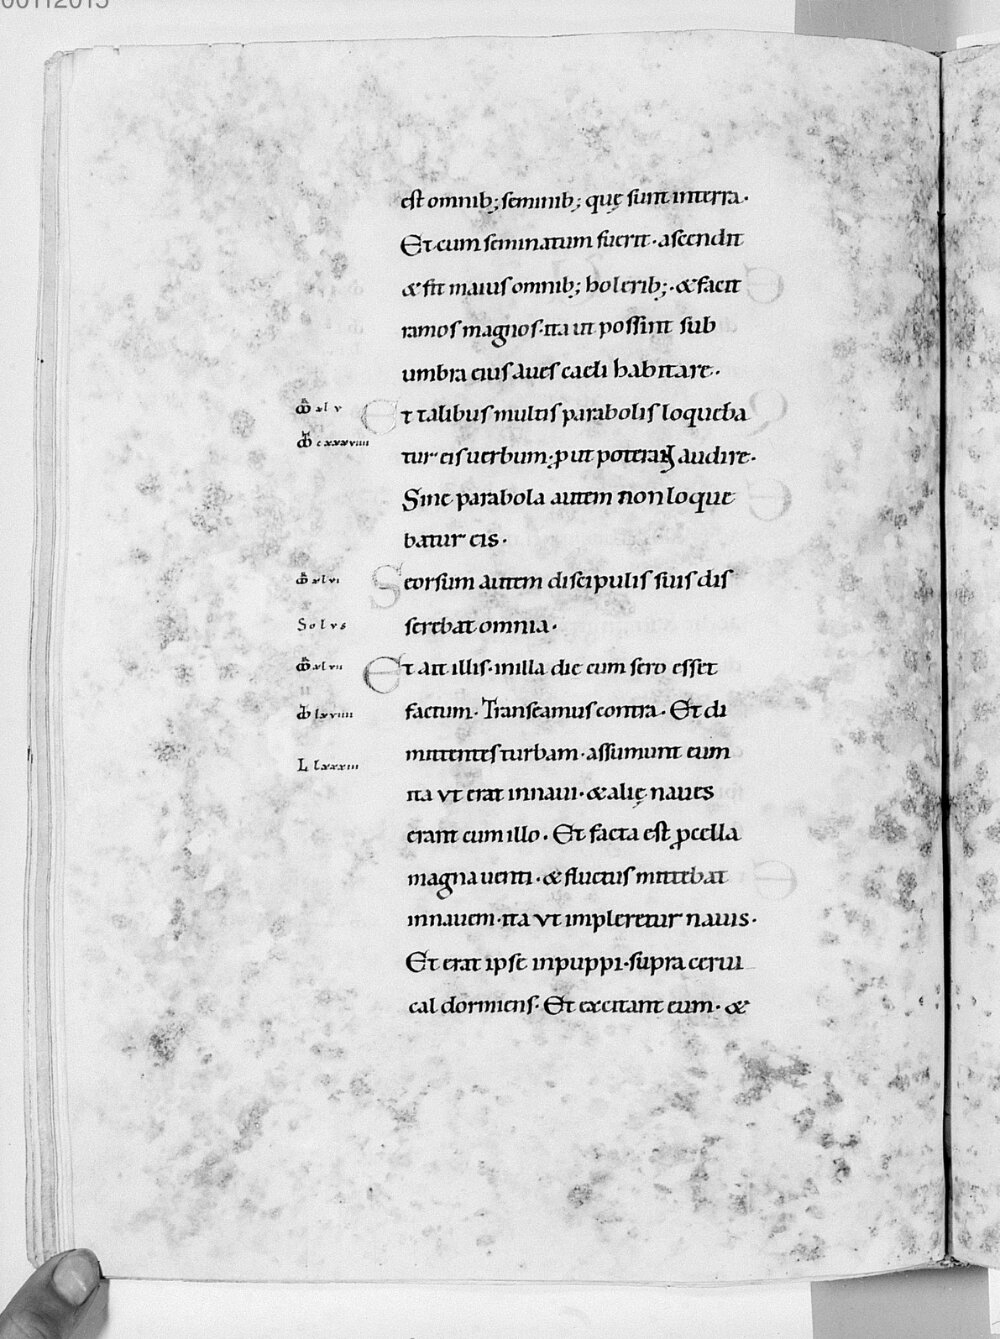 00112015
est omnib; seminib; quę sunt interra.
Et cum seminatum fuerit. ascendit
& fit maius omnib; holerib;. & facit
ramos magnos. ita ut possint sub
umbra eius aues caeli habitare.
Et talibus multis parabolis loqueba
tur eis uerbum; put poterant audire.
Sine parabola autem non loque
batur eis.
Seorsum autem discipulis suis dis
Solus
serebat omnia.
Et ait illis. inilla die cum sero esset
factum. Transeamus contra. Et di
mittentes turbam. assumunt eum
L lxxxiii
ita vt erat innaui. & alię naues
erant cum illo. Et facta est pcella
magna uenti. & fluctus mittebat
innauem. ita vt impleretur nauis.
Et erat ipse inpuppi. supra cerui
cal dormiens. Et excitant eum. &